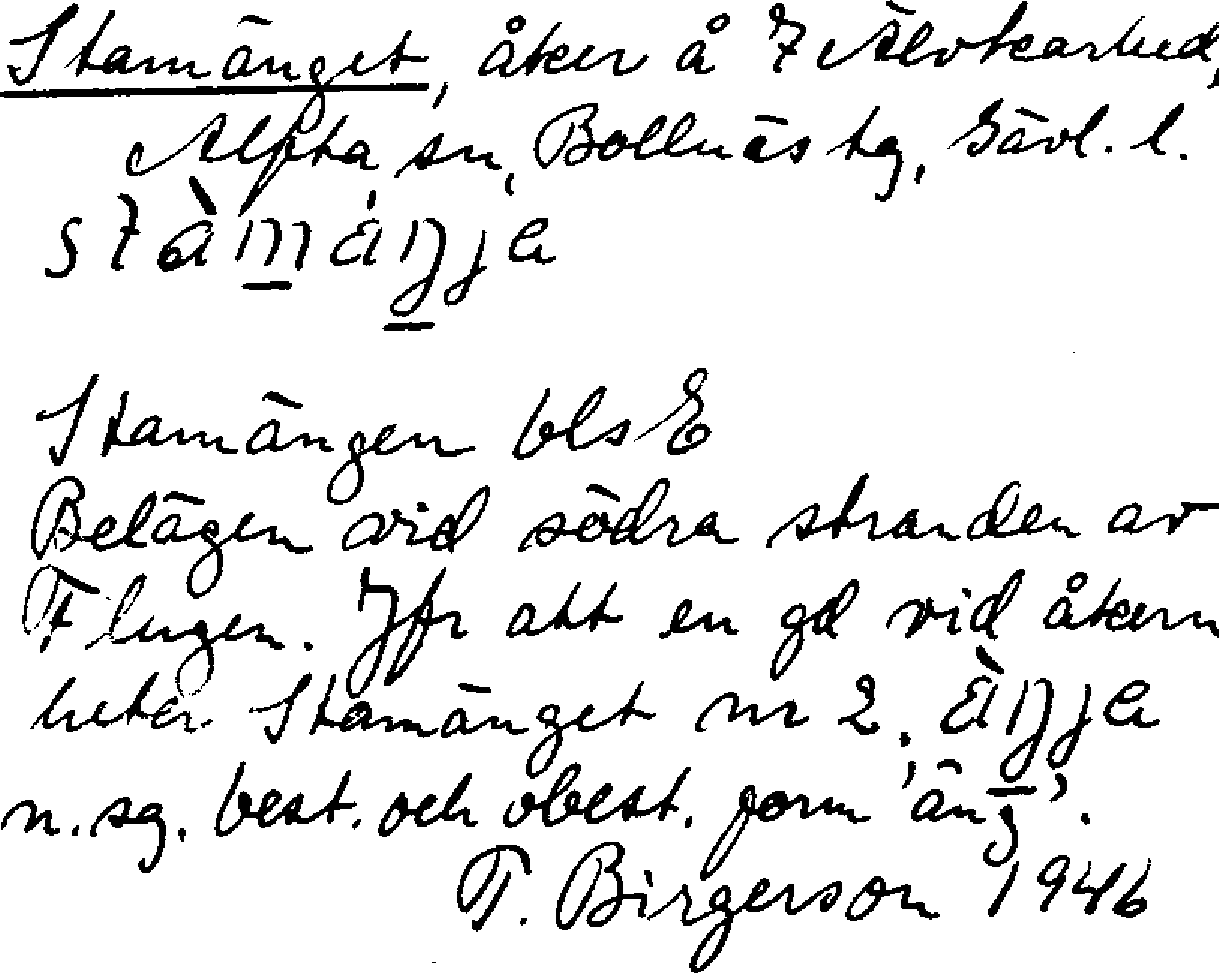 Stamänget, åker å 7 Älvkarhed,
Alfta sn, Bollnäs tg, Gävl. l.
stàmäŋja
Stamängen bls E
Belägen vid södra stranden av
Flugen. Jfr att en gd vid åkern
heter Stamänget nr 2. ä̀ŋja
n. sg. best. och obest. form 'äng'.
T. Birgerson 1946